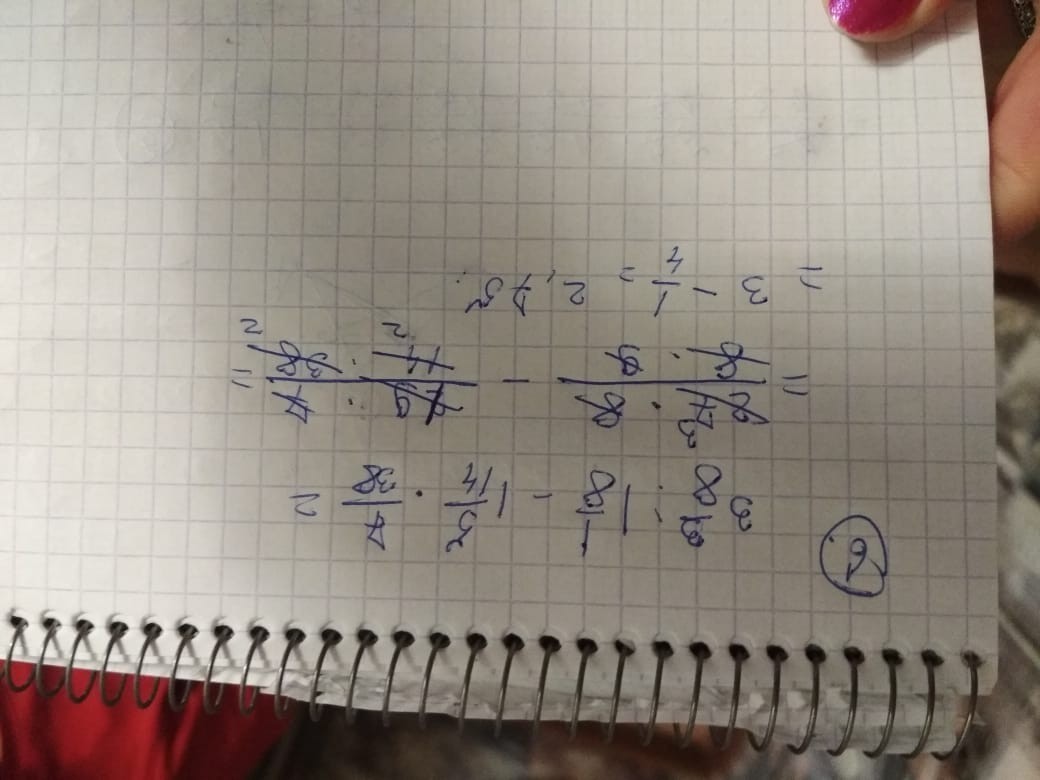 6. 3 3/8 : 1 1/8 - 1 5/14 · 7/38 =
= (27 · 8)/(8 · 9) - (19 · 7)/(14 · 38) =
= 3 - 1/4 = 2,75.